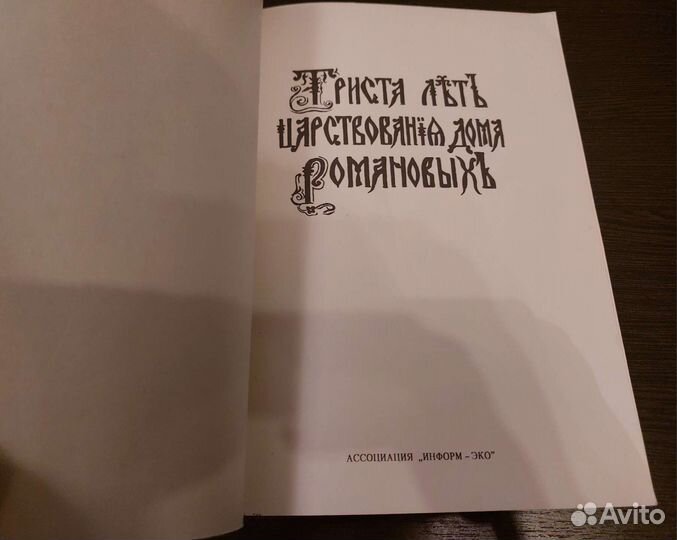 Триста лѣтъ
царствованїѧ дома
Романовыхъ
АССОЦИАЦИЯ „ИНФОРМ – ЭКО"
Avito